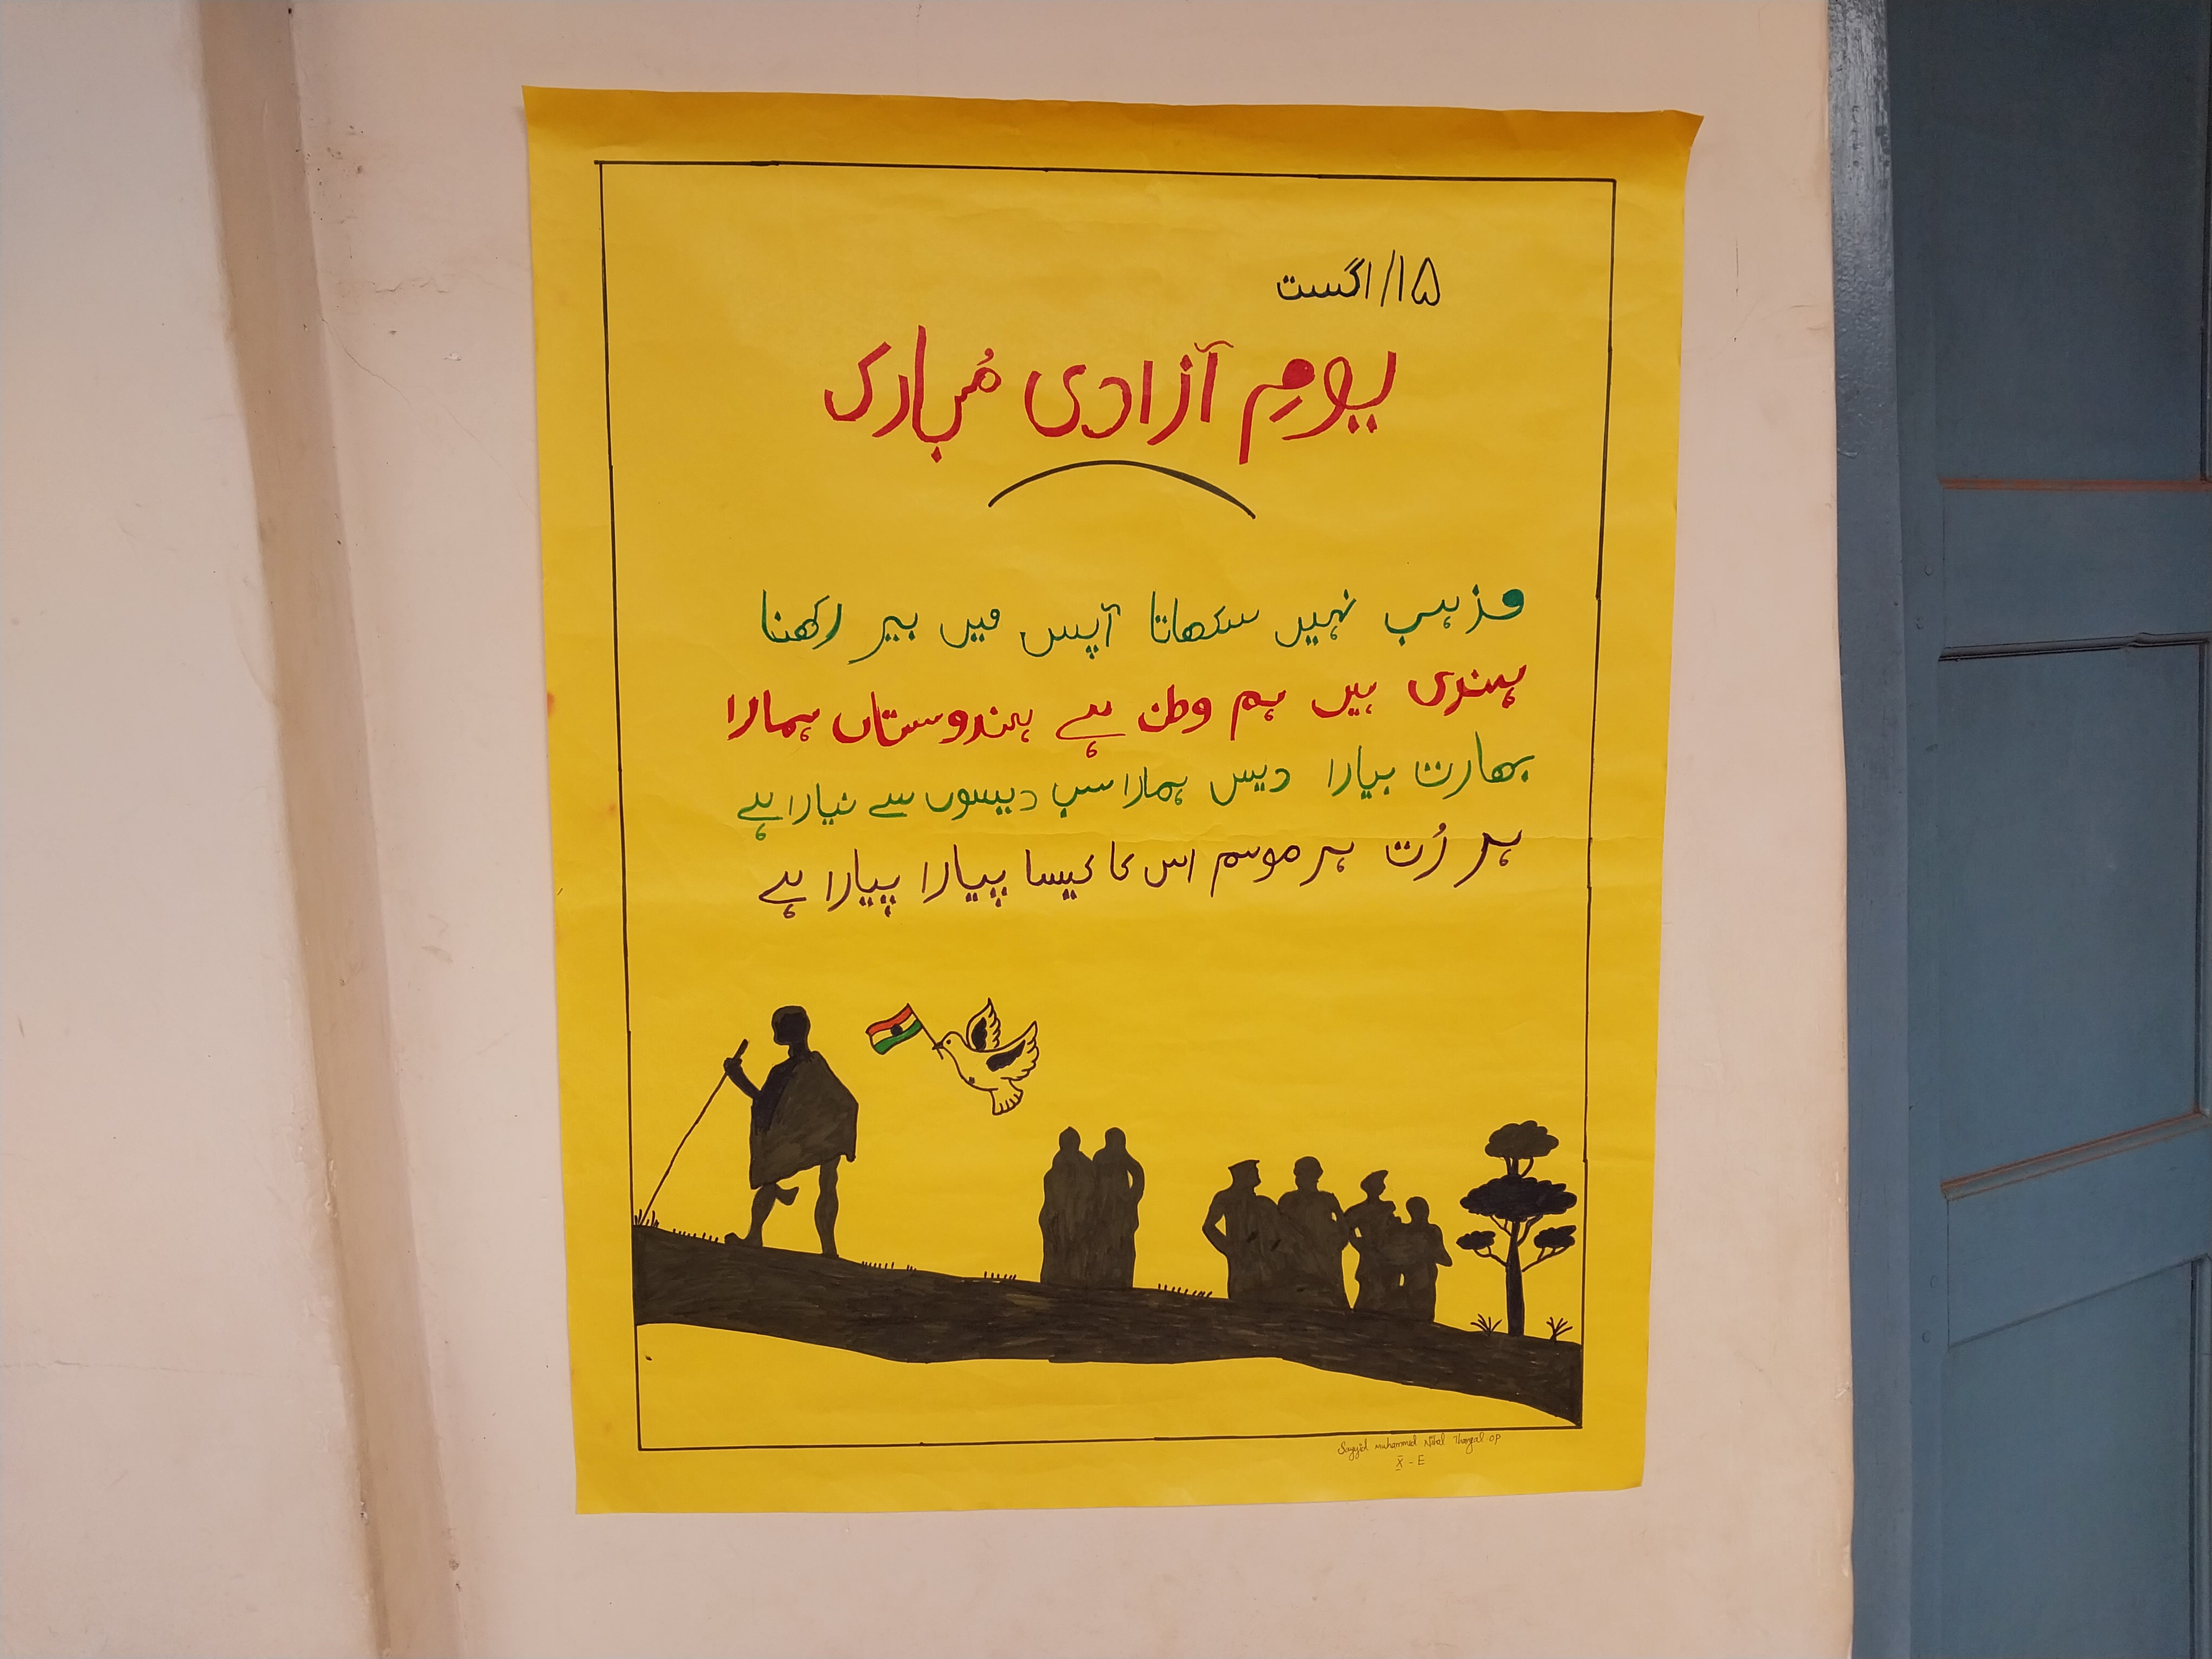 ۱۵/اگست
یومِ آزادی مُبارک
مذہب نہیں سکھاتا آپس میں بیر رکھنا
ہندی ہیں ہم وطن ہے ہندوستاں ہمارا
بھارت پیارا دیس ہمارا سب دیسوں سے نیارا ہے
ہر رُت ہر موسم اس کا کیسا پیارا پیارا ہے
Sayyid Muhammed Nihal Thangal.OP
X - E